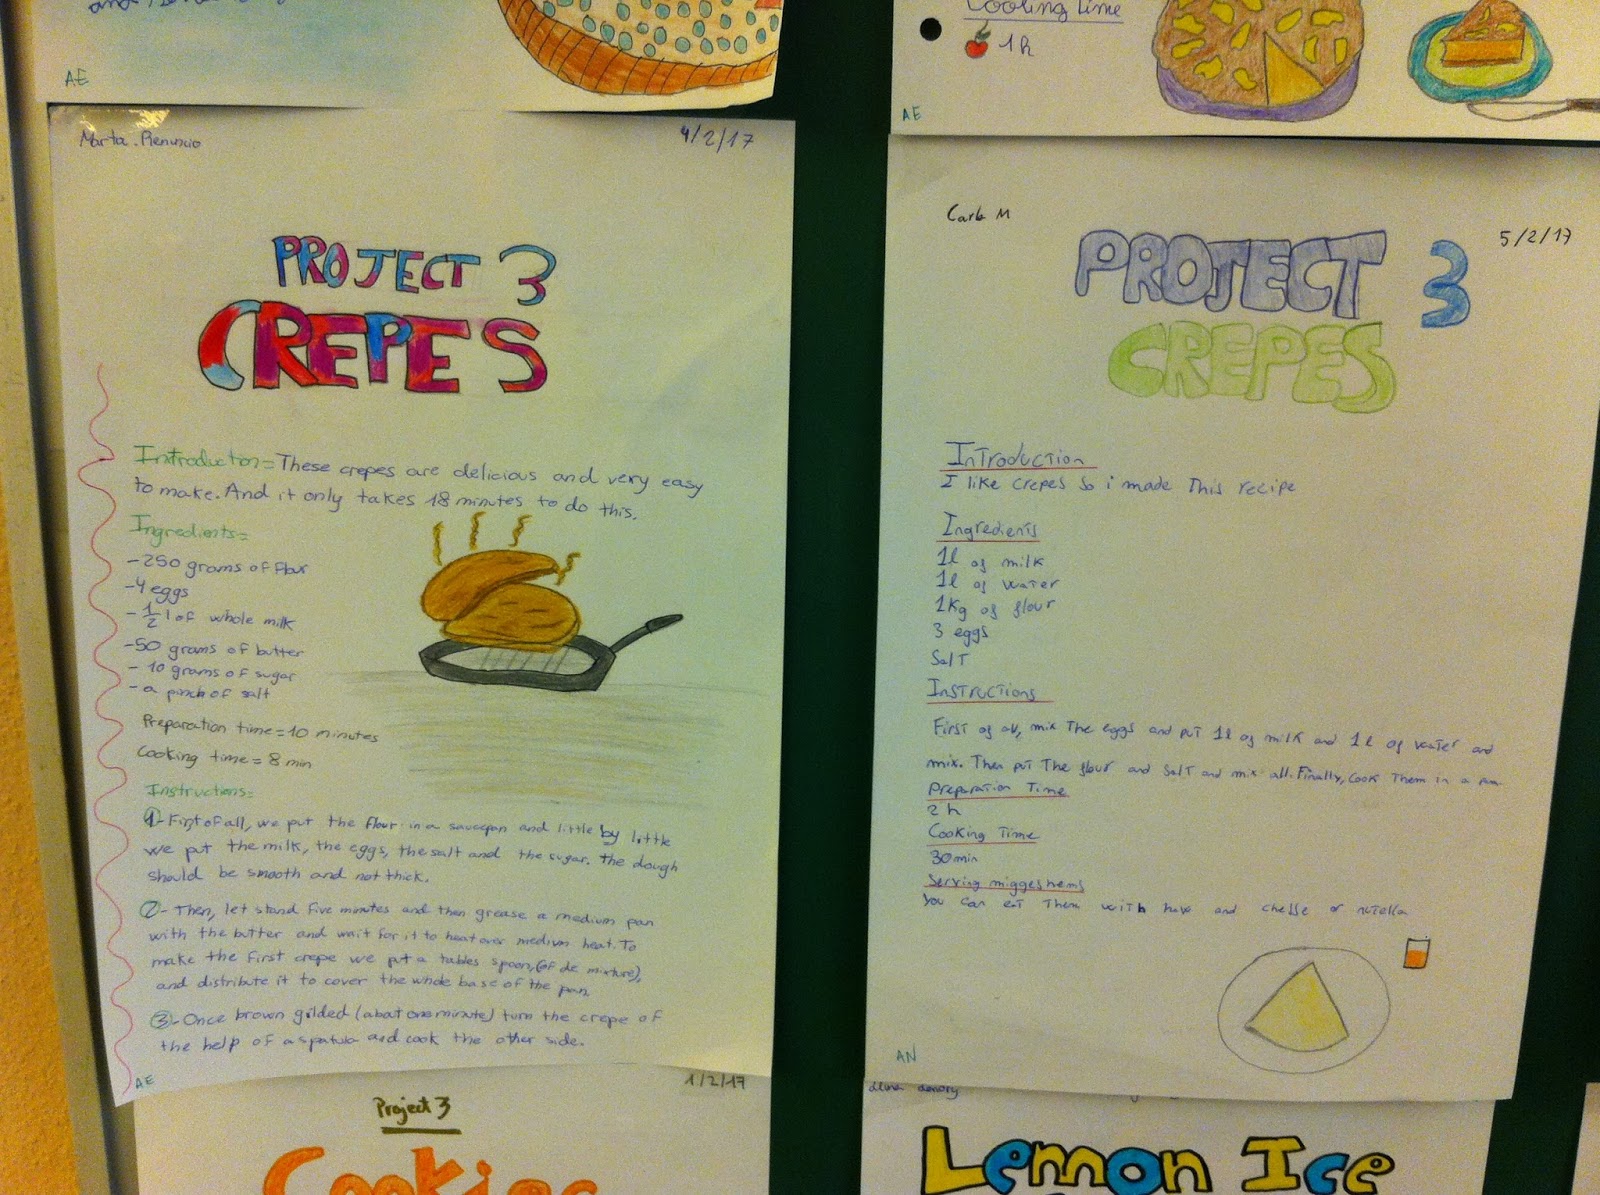 AE
Cooking Time
1h
AE
Marta Renuncio
4/2/17
PROJECT 3
CREPES
Introduction= These crepes are delicious and very easy
to make. And it only takes 18 minutes to do this.
Ingredients=
-250 grams of flour
-4 eggs
- 1/2 l of whole milk
-50 grams of butter
- 10 grams of sugar
- a pinch of salt
Preparation time = 10 minutes
Cooking time = 8 min
Instructions=
1- First of all, we put the flour in a saucepan and little by little
we put the milk, the eggs, the salt and the sugar. the dough
should be smooth and not thick.
2- Then, let stand five minutes and then grease a medium pan
with the butter and wait for it to heat over medium heat. To
make the first crepe we put a tables spoon, (of de mixture),
and distribute it to cover the whole base of the pan.
3- Once brown gilded (about one minute) turn the crepe of
the help of a spatula and cook the other side.
AE
Carla M
5/2/17
PROJECT 3
CREPES
Introduction
I like crepes So i made This recipe
Ingredients
1l of milk
1l of water
1Kg of flour
3 eggs
Salt
Instructions
First of all, mix The eggs and put 1l of milk and 1l of water and
mix. Then put The flour and Salt and mix all. Finally, cook Them in a pan
Preparation Time
2h
Cooking Time
30min
Serving
You can eat Them with and or nutella
AN
1/2/17
Project 3
Cookies
Lemon Ice